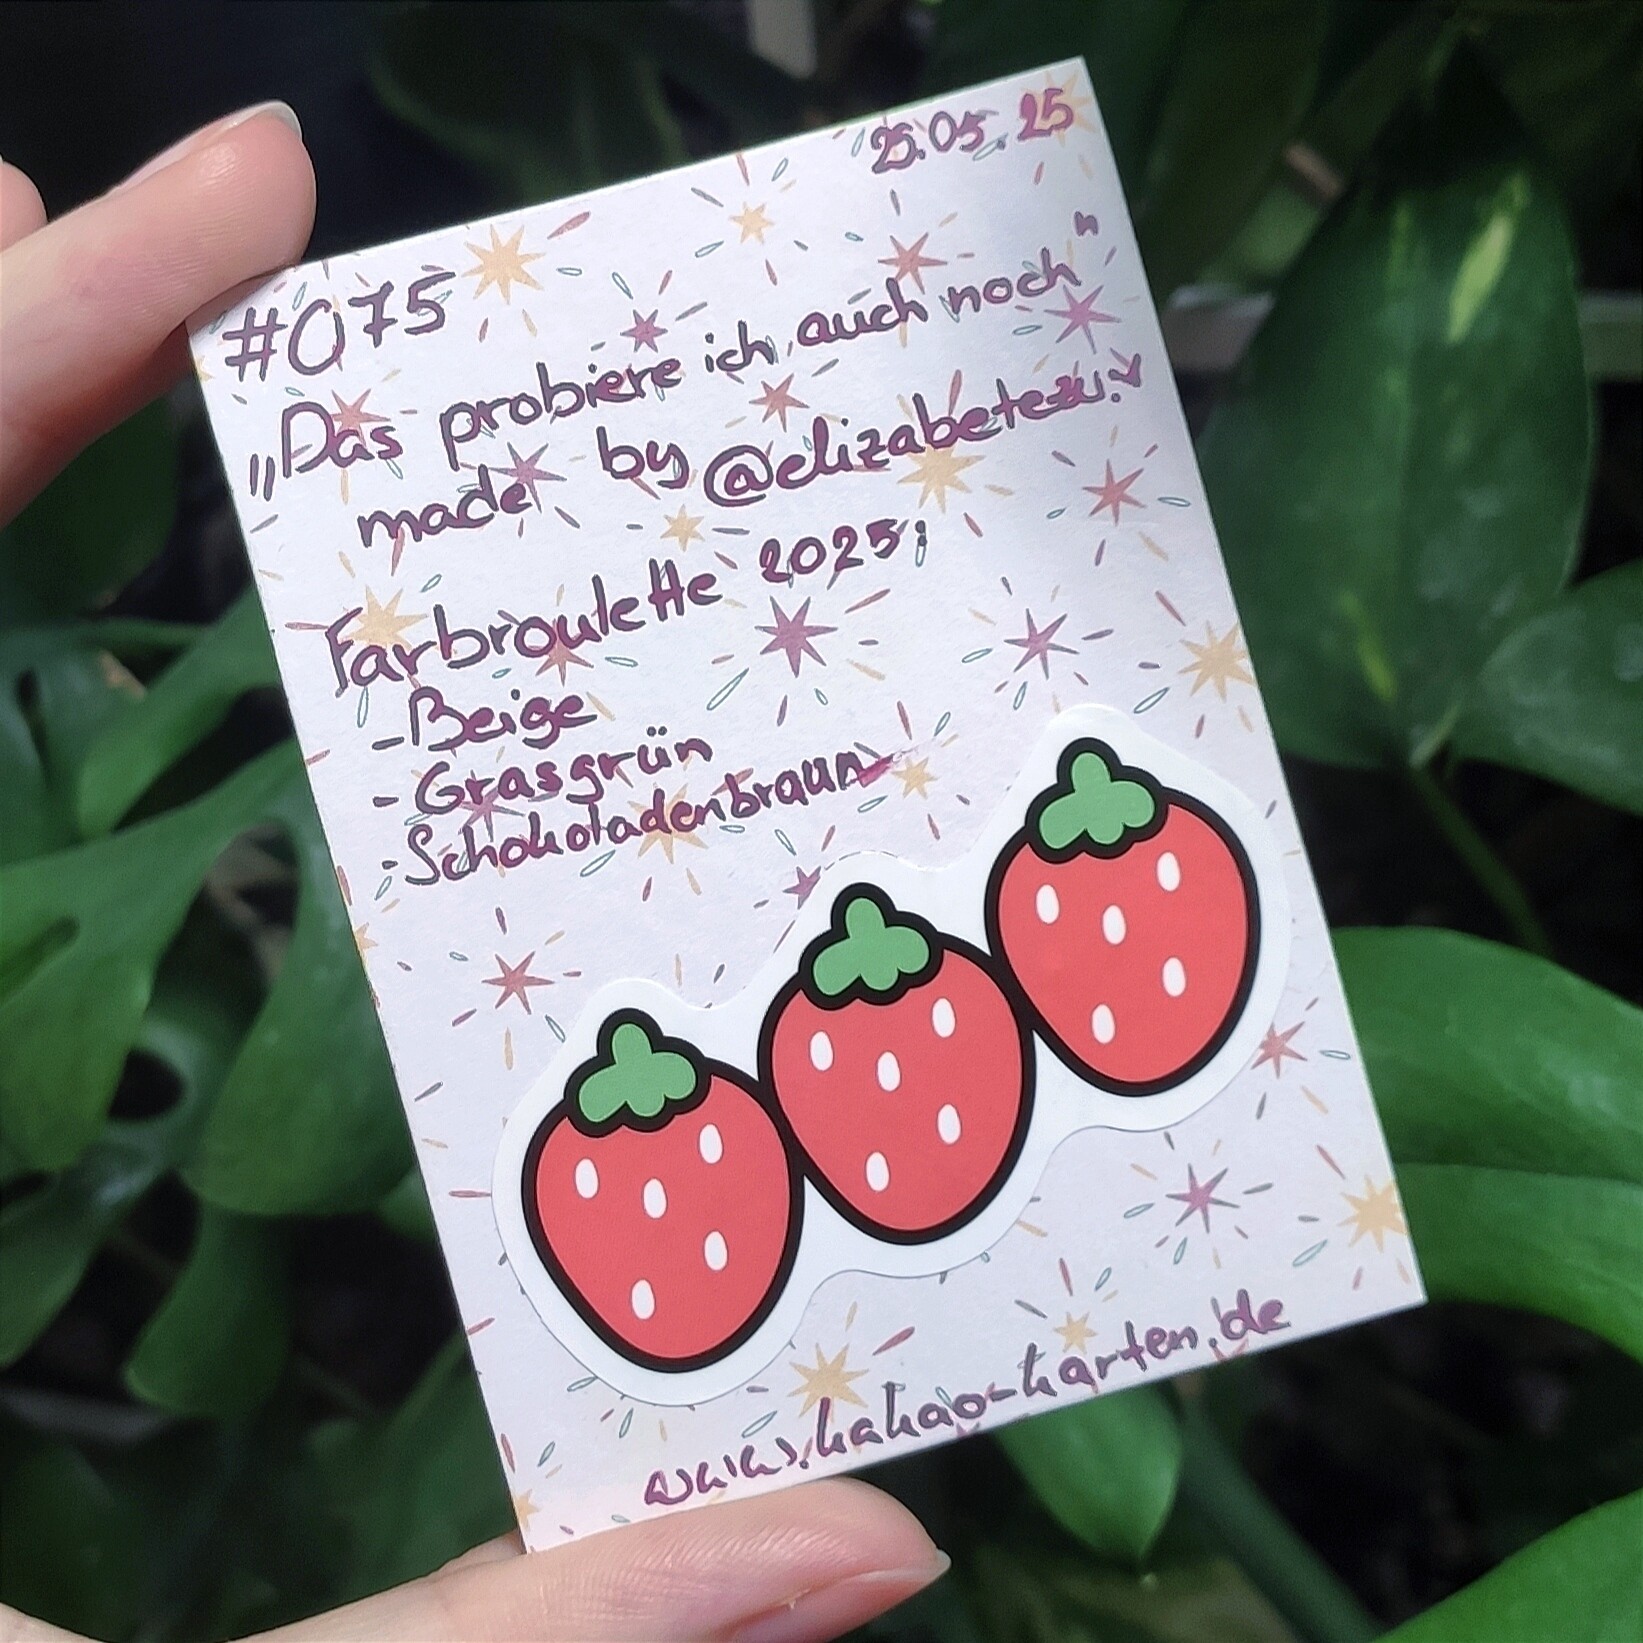 25.05.25
#075
„Das probiere ich auch noch"
made by @elizabetezu.♥
Farbroulette 2025:
-Beige
-Grasgrün
-Schokoladenbraun
www.kakao-karten.de